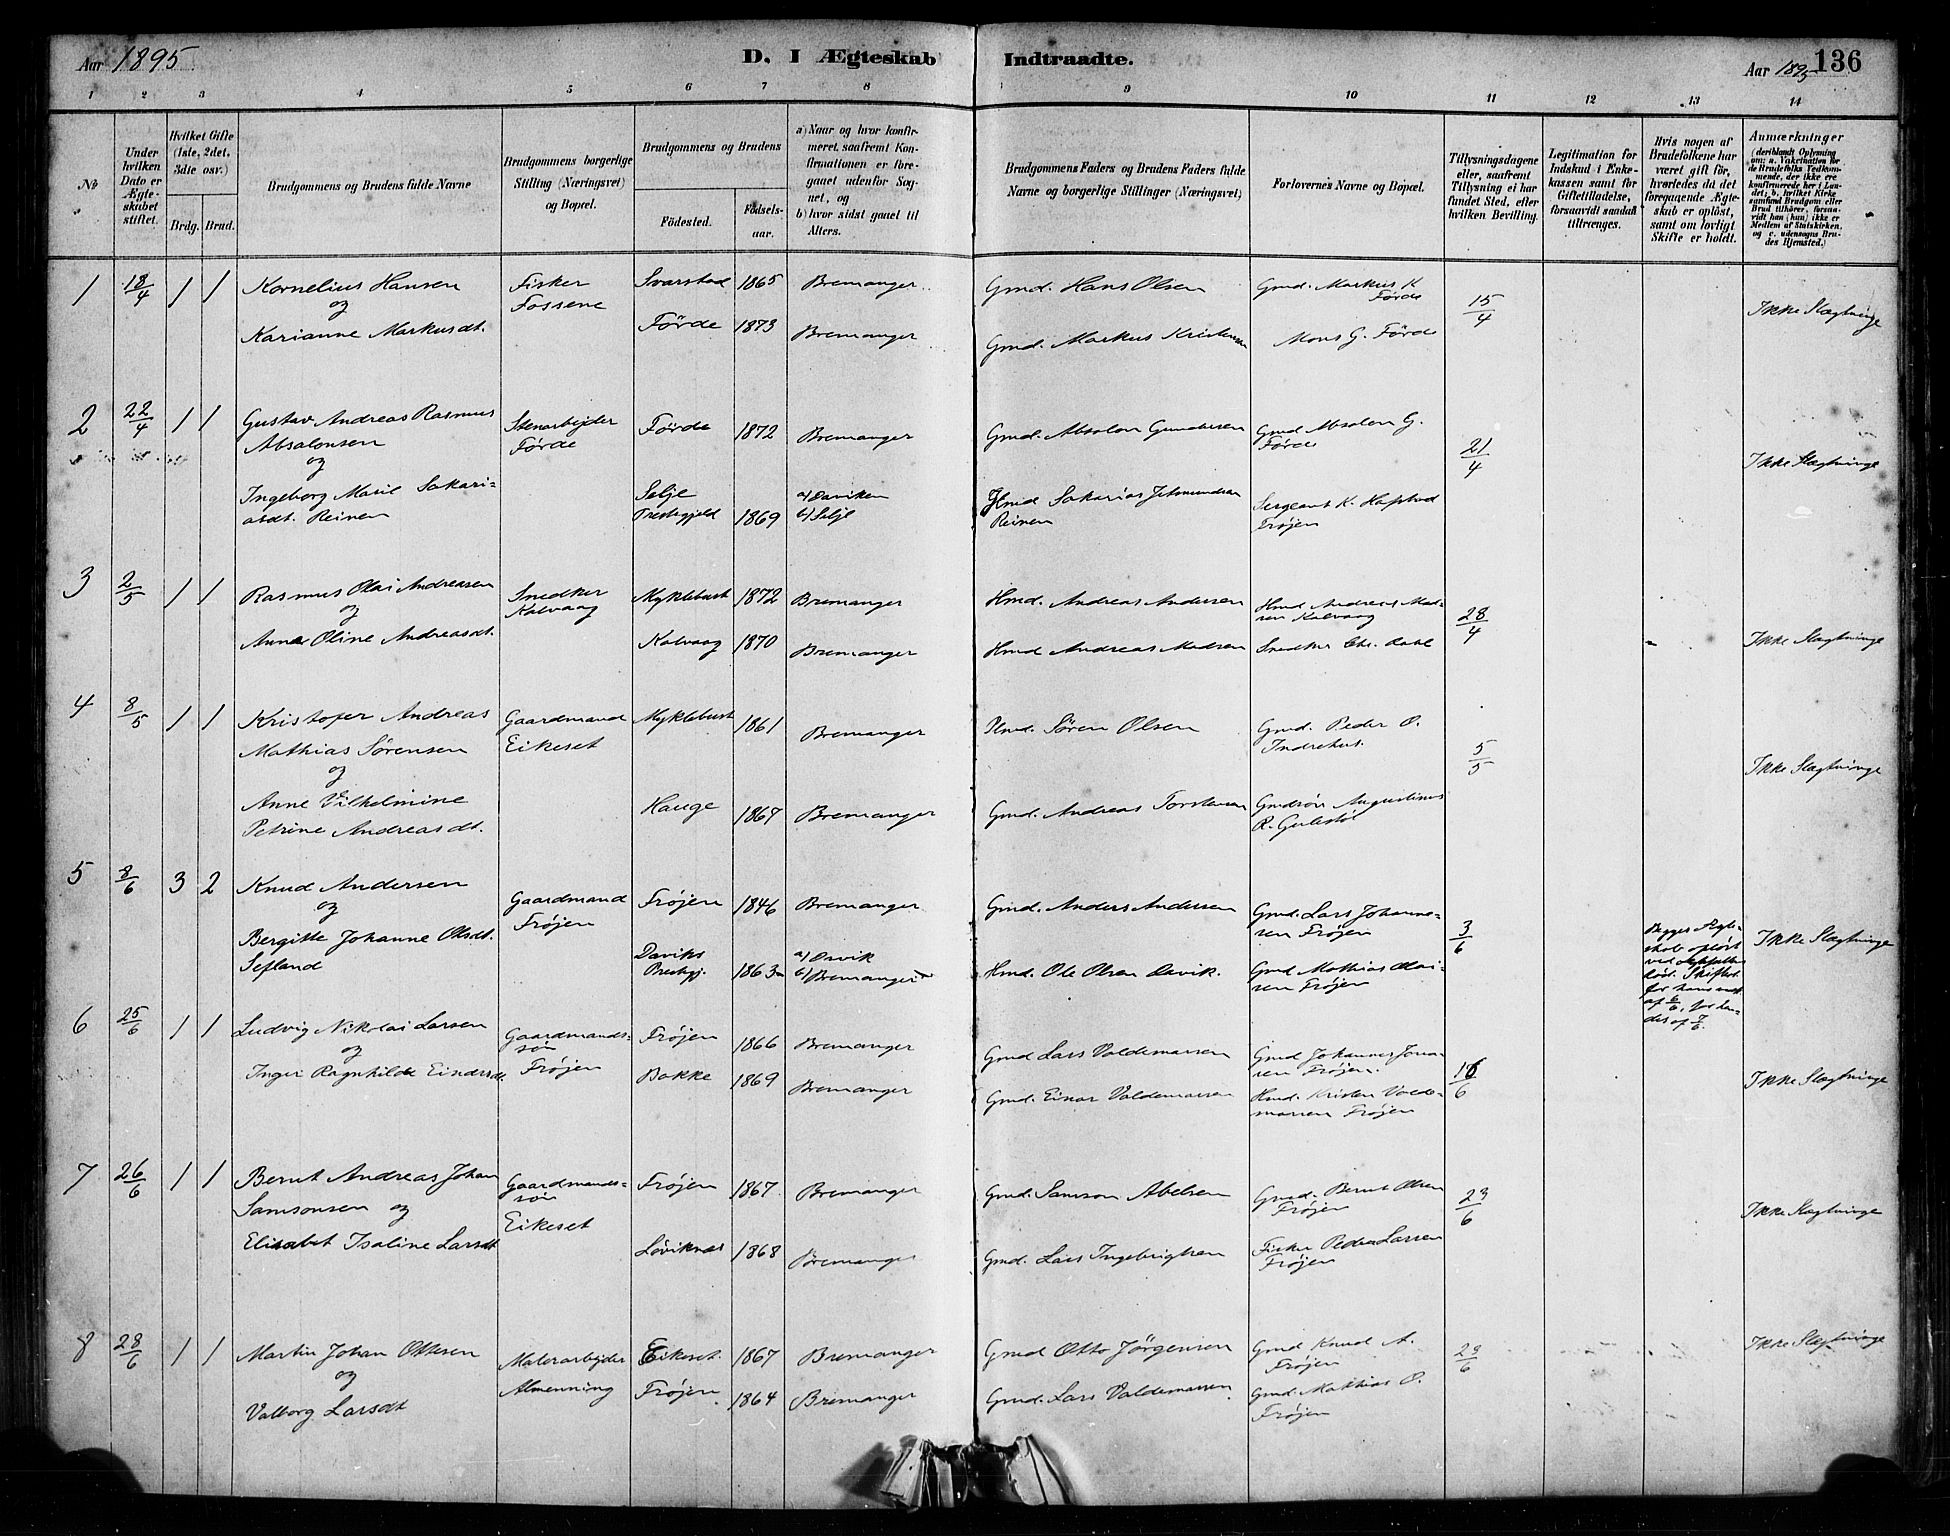 Aar 1895
D. I Ægteskab Indtraadte.
Aar 1895
136
1 2 3 4 5 6 7 8 9 10 11 12 13 14
No
Under hvilken Dato er Ægteskabet stiftet.
Hvilket Gifte (1ste, 2det, 3die osv.)
Brdg. Brud.
Brudgommens og Brudens fulde Navne
Brudgommens borgerlige Stilling (Næringsvei) og Bopæl.
Brudgommens og Brudens
Fødested.
Fødselsaar.
a) Naar og hvor konfirmeret, saafremt Konfirmationen er foregaaet udenfor Sognet, og
b) hvor sidst gaaet til Alters.
Brudgommens Faders og Brudens Faders fulde Navne og borgerlige Stillinger (Næringsvei)
Forlovernes Navne og Bopæl.
Tillysningsdagene eller, saafremt Tillysning ei har fundet Sted, efter hvilken Bevilling.
Legitimation for Indskud i Enkekassen samt for Giftetilladelse, forsaavidt saadan tiltrænges.
Hvis nogen af Brudefolkene har været gift før, hvorledes da det foregaaende Ægteskab er opløst, samt om lovligt Skifte er holdt.
Anmærkninger (deriblandt Oplysning om: a. Vakcination for de Brudefolks Vedkommende, der ikke ere konfirmerede her i Landet; b. hvilket Kirkesamfund Brudgom eller Brud tilhører, forsaavidt han (hun) ikke er Medlem af Statskirken, og c. udensogns Brudes Hjemsted.)
1 18/4 1 1 Kornelius Hansen Fisker Svarstad 1865 Bremanger Gmd. Hans Olsen Gmd. Markus K
og Fossene Førde 15/4 Ikke Slægtninge
Karianne Markusdt. Førde 1873 Bremanger Gmd. Markus Kristensen Mons G. Førde
2 22/4 1 1 Gustav Andreas Rasmus Stenarbejder Førde 1872 Bremanger Gmd. Absalon Gundersen Gmd Absalon G.
Absalonsen Førde Førde
og 21/4 Ikke Slægtninge
Ingeborg Marie Sakari= Selje a) Daviken Hmd Sakarias Sergeant K. Hafstad
asdt. Reinen Prestegjeld 1869 b) Selje Reinen Frøjen
3 2/5 1 1 Rasmus Olai Andreasen Snedker Myklebust 1872 Bremanger Hmd. Andreas Andersen Hmd Andreas Mad-
og Kalvaag sen Kalvaag 28/4
Anna Oline Andreasdt. Kalvaag 1870 Bremanger Hmd Andreas Madsen Snedker Chr. Dahl Ikke Slægtninge
4 8/5 1 1 Kristofer Andreas Gaardmand Myklebust 1861 Bremanger Hmd. Søren Olsen Gmd. Peder O.
Mathias Sørensen Eikeset Indrehus. 5/5
og Ikke Slægtninge
Anne Vilhelmine Hauge 1867 Bremanger Gmd. Andreas Torstensen Gmdsøn Augustinus
Petrine Andreasdt. R. Gulestøl
5 8/6 3 2 Knud Andersen Gaardmand Frøjen 1846 Bremanger Gmd. Anders Andersen Gmd. Lars Johanne-
og Frøjen sen Frøjen 3/6 Begges Ægte-
Bergitte Johanne Olsdt. Daviks a) Davik skab opløst Ikke Slægtninge
Sefland Prestgj. 1863 b) Bremanger Hmd. Ole Olsen Davik. Gmd Mathias Olai-
sen Frøjen ved
død. Skiftet
for hans
af 6/6, for hen-
des af 7/6.
6 25/6 1 1 Ludvig Nikolai Larsen Gaardmands- Frøjen 1866 Bremanger Gmd Lars Valdemarsen Gmd Johannes
og søn sen Frøjen. 16/6
Inger Ragnhilde Eindersdt. Frøjen Bakke 1869 Bremanger Gmd. Einar Valdemarsen Hmd. Kristen Valde- Ikke Slægtninge
marsen Frøjen
7 26/6 1 1 Bernt Andreas Johan Gaardmands- Frøjen 1867. Bremanger Gmd. Samson Abelsen Gmd. Bernt Olsen
Samsonsen og søn Frøjen 23/6 Ikke Slægtninge
Eikeset
Elisabet Isaline Larsdt Løviknes 1868 Bremanger Gmd. Lars Ingebrigtsen Fisker Peder Larsen
Frøjen
8 28/6 1 1 Martin Johan Ottesen Malerarbejder Eikeset. 1867 Bremanger Gmd Otto Jørgensen Gmd Knud A. Ikke Slægtninge
og Frøjen 23/6
Almenning Frøjen 1864 Bremanger Gmd. Lars Valdemarsen Gmd. Mathias O.
Valborg Larsdt Frøjen